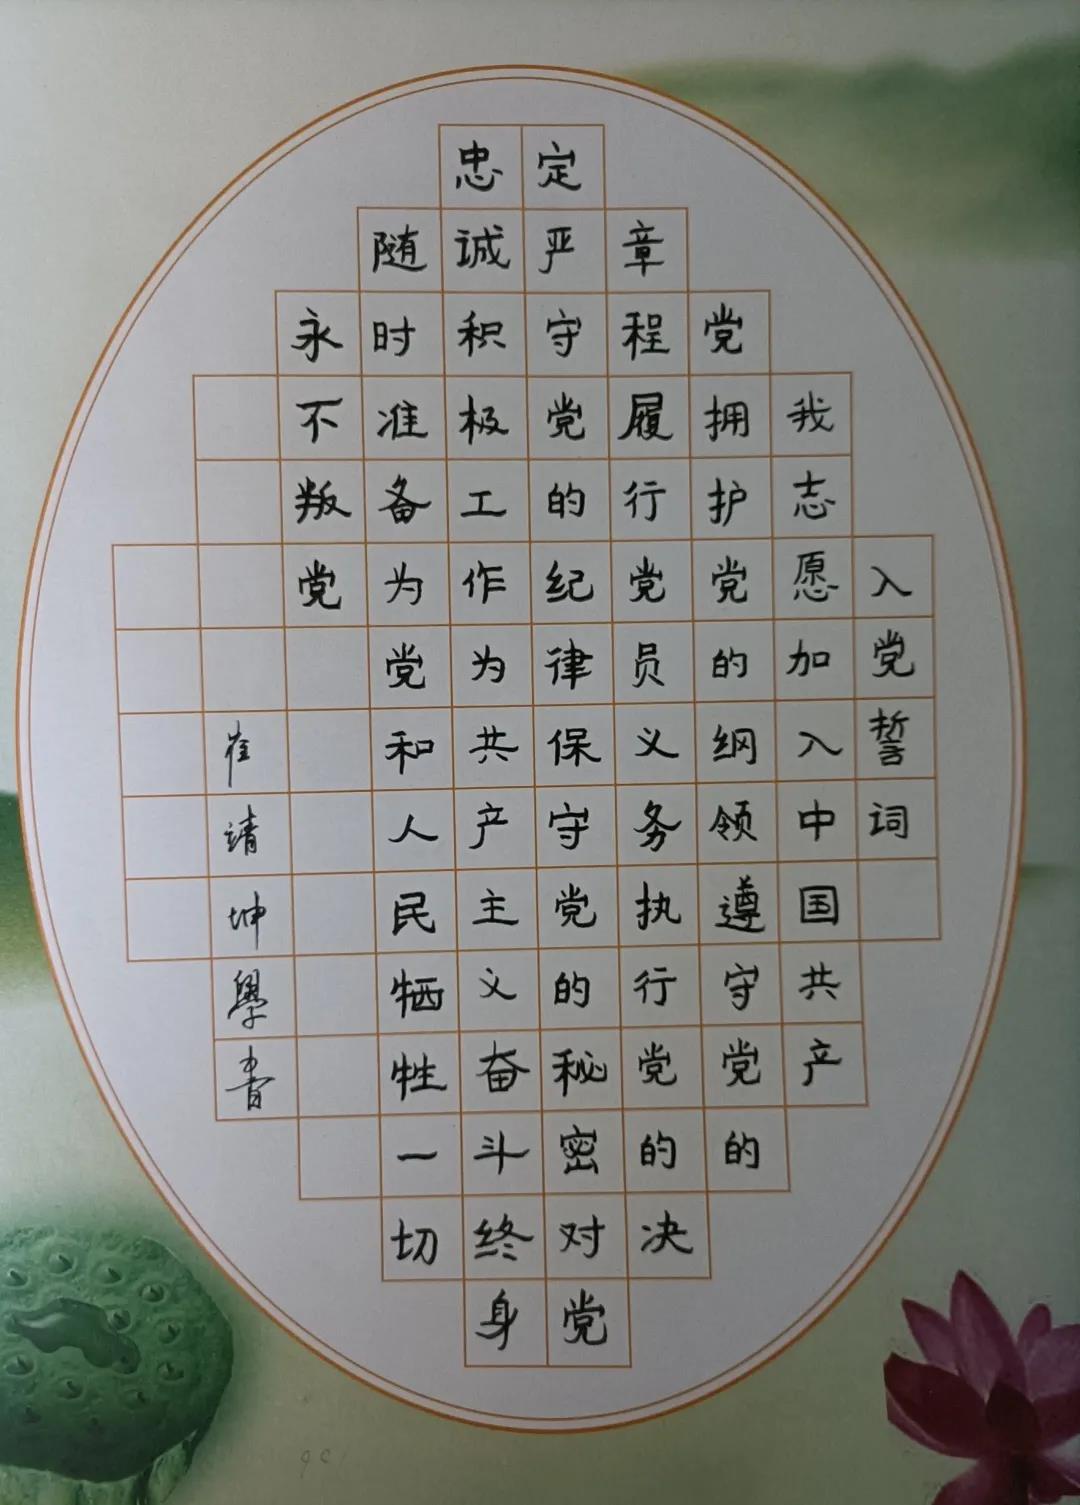 入党誓词
我志愿加入中国共产
党拥护党的纲领遵守党的
章程履行党员义务执行党的决
定严守党的纪律保守党的秘密对党
忠诚积极工作为共产主义奋斗终身
随时准备为党和人民牺牲一切
永不叛党
崔靖坤學書